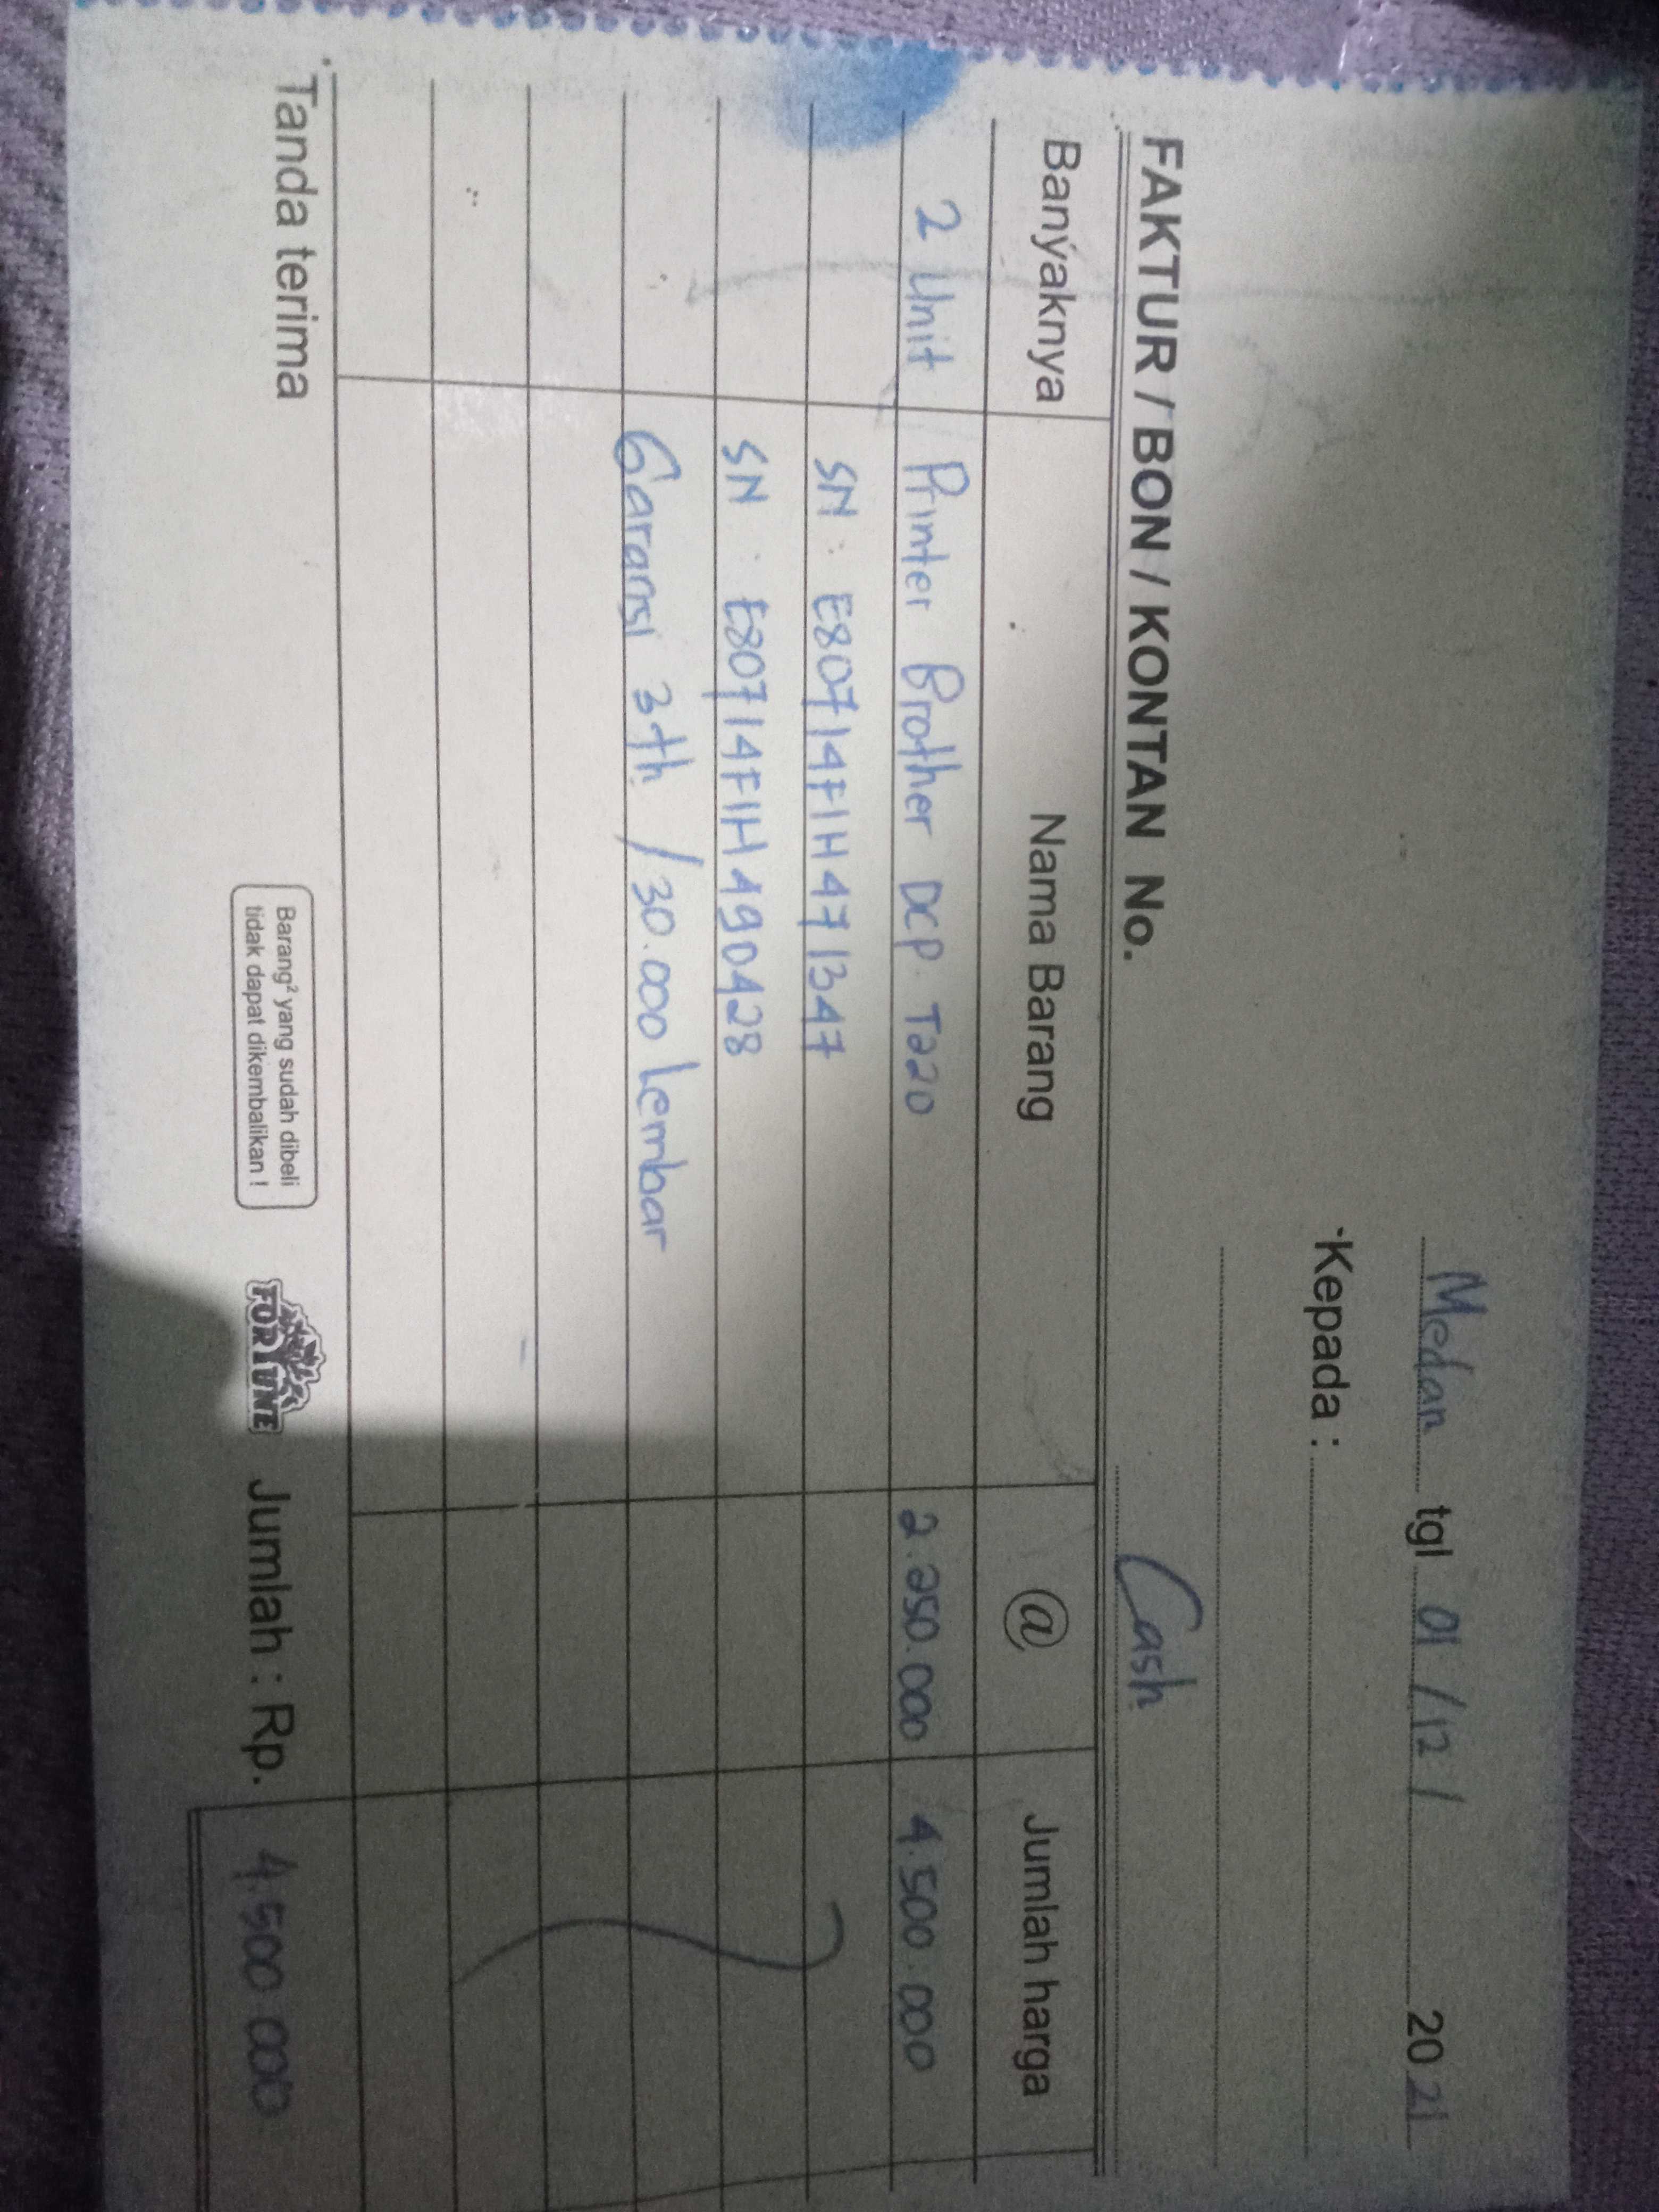 Medan tgl 01/12/ 2021
Kepada :
Cash
FAKTUR / BON / KONTAN No.
Banyaknya Nama Barang @ Jumlah harga
2 Unit Printer Brother DCP T220 2.250.000 4.500.000
SN : E80714F1H471347
SN : E80714F1H490428
Garansi 3th / 30.000 Lembar
Tanda terima
Barang² yang sudah dibeli
tidak dapat dikembalikan !
FORTUNE
Jumlah : Rp. 4.500.000